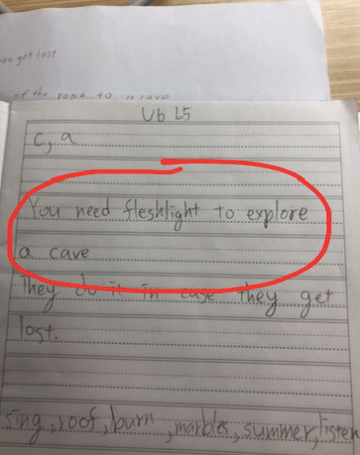 you get lost
of the rope to a cave
U6 L5
c, a
You need fleshlight to explore
a cave
They do it in case they get
lost.
sing, roof, burn, marbles, summer, listen